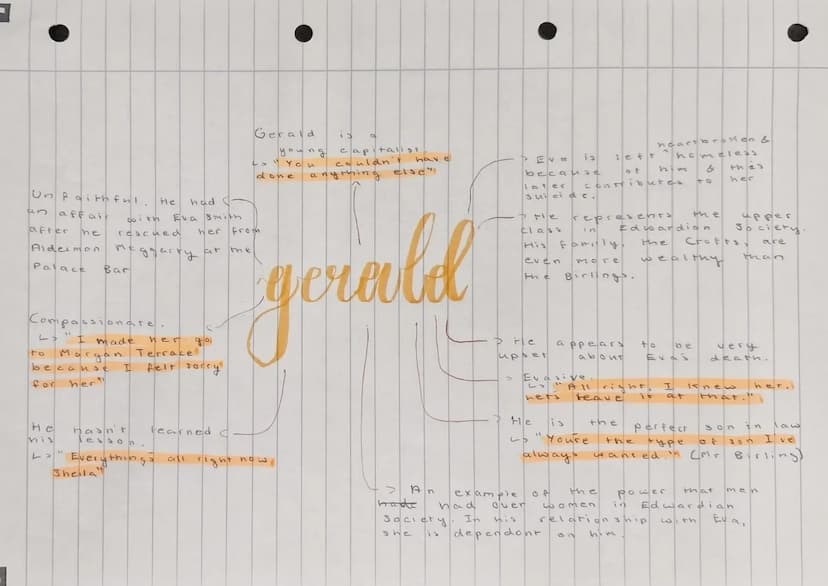 Gerald is a
young capitalist.
↳ "You couldn't have
done anything else"
Unfaithful. He had
an affair with Eva Smith
after he rescued her from
Alderman Meggarty at the
Palace Bar
Compassionate.
↳ "I made her go
to Morgan Terrace
because I felt sorry
for her"
He hasn't learned
his lesson.
↳ "Everything's all right now,
Sheila"
gerald
heartbroken &
Eva is left ^ homeless
because of him & this
later contributes to her
suicide.
He represents the upper
class in Edwardian Society.
His family, the Crofts, are
even more wealthy than
the Birlings.
He appears to be very
upset about Eva's death.
Evasive.
↳ "All right, I knew her.
Let's leave it at that."
He is the perfect son in law
↳ "You're the type of son I've
always wanted." (Mr Birling)
An example of the power that men
had had over women in Edwardian
Society. In his relationship with Eva,
she is dependant on him.